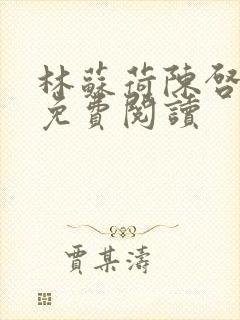 林蘇荷陳啓
免費閱讀
賈某濤